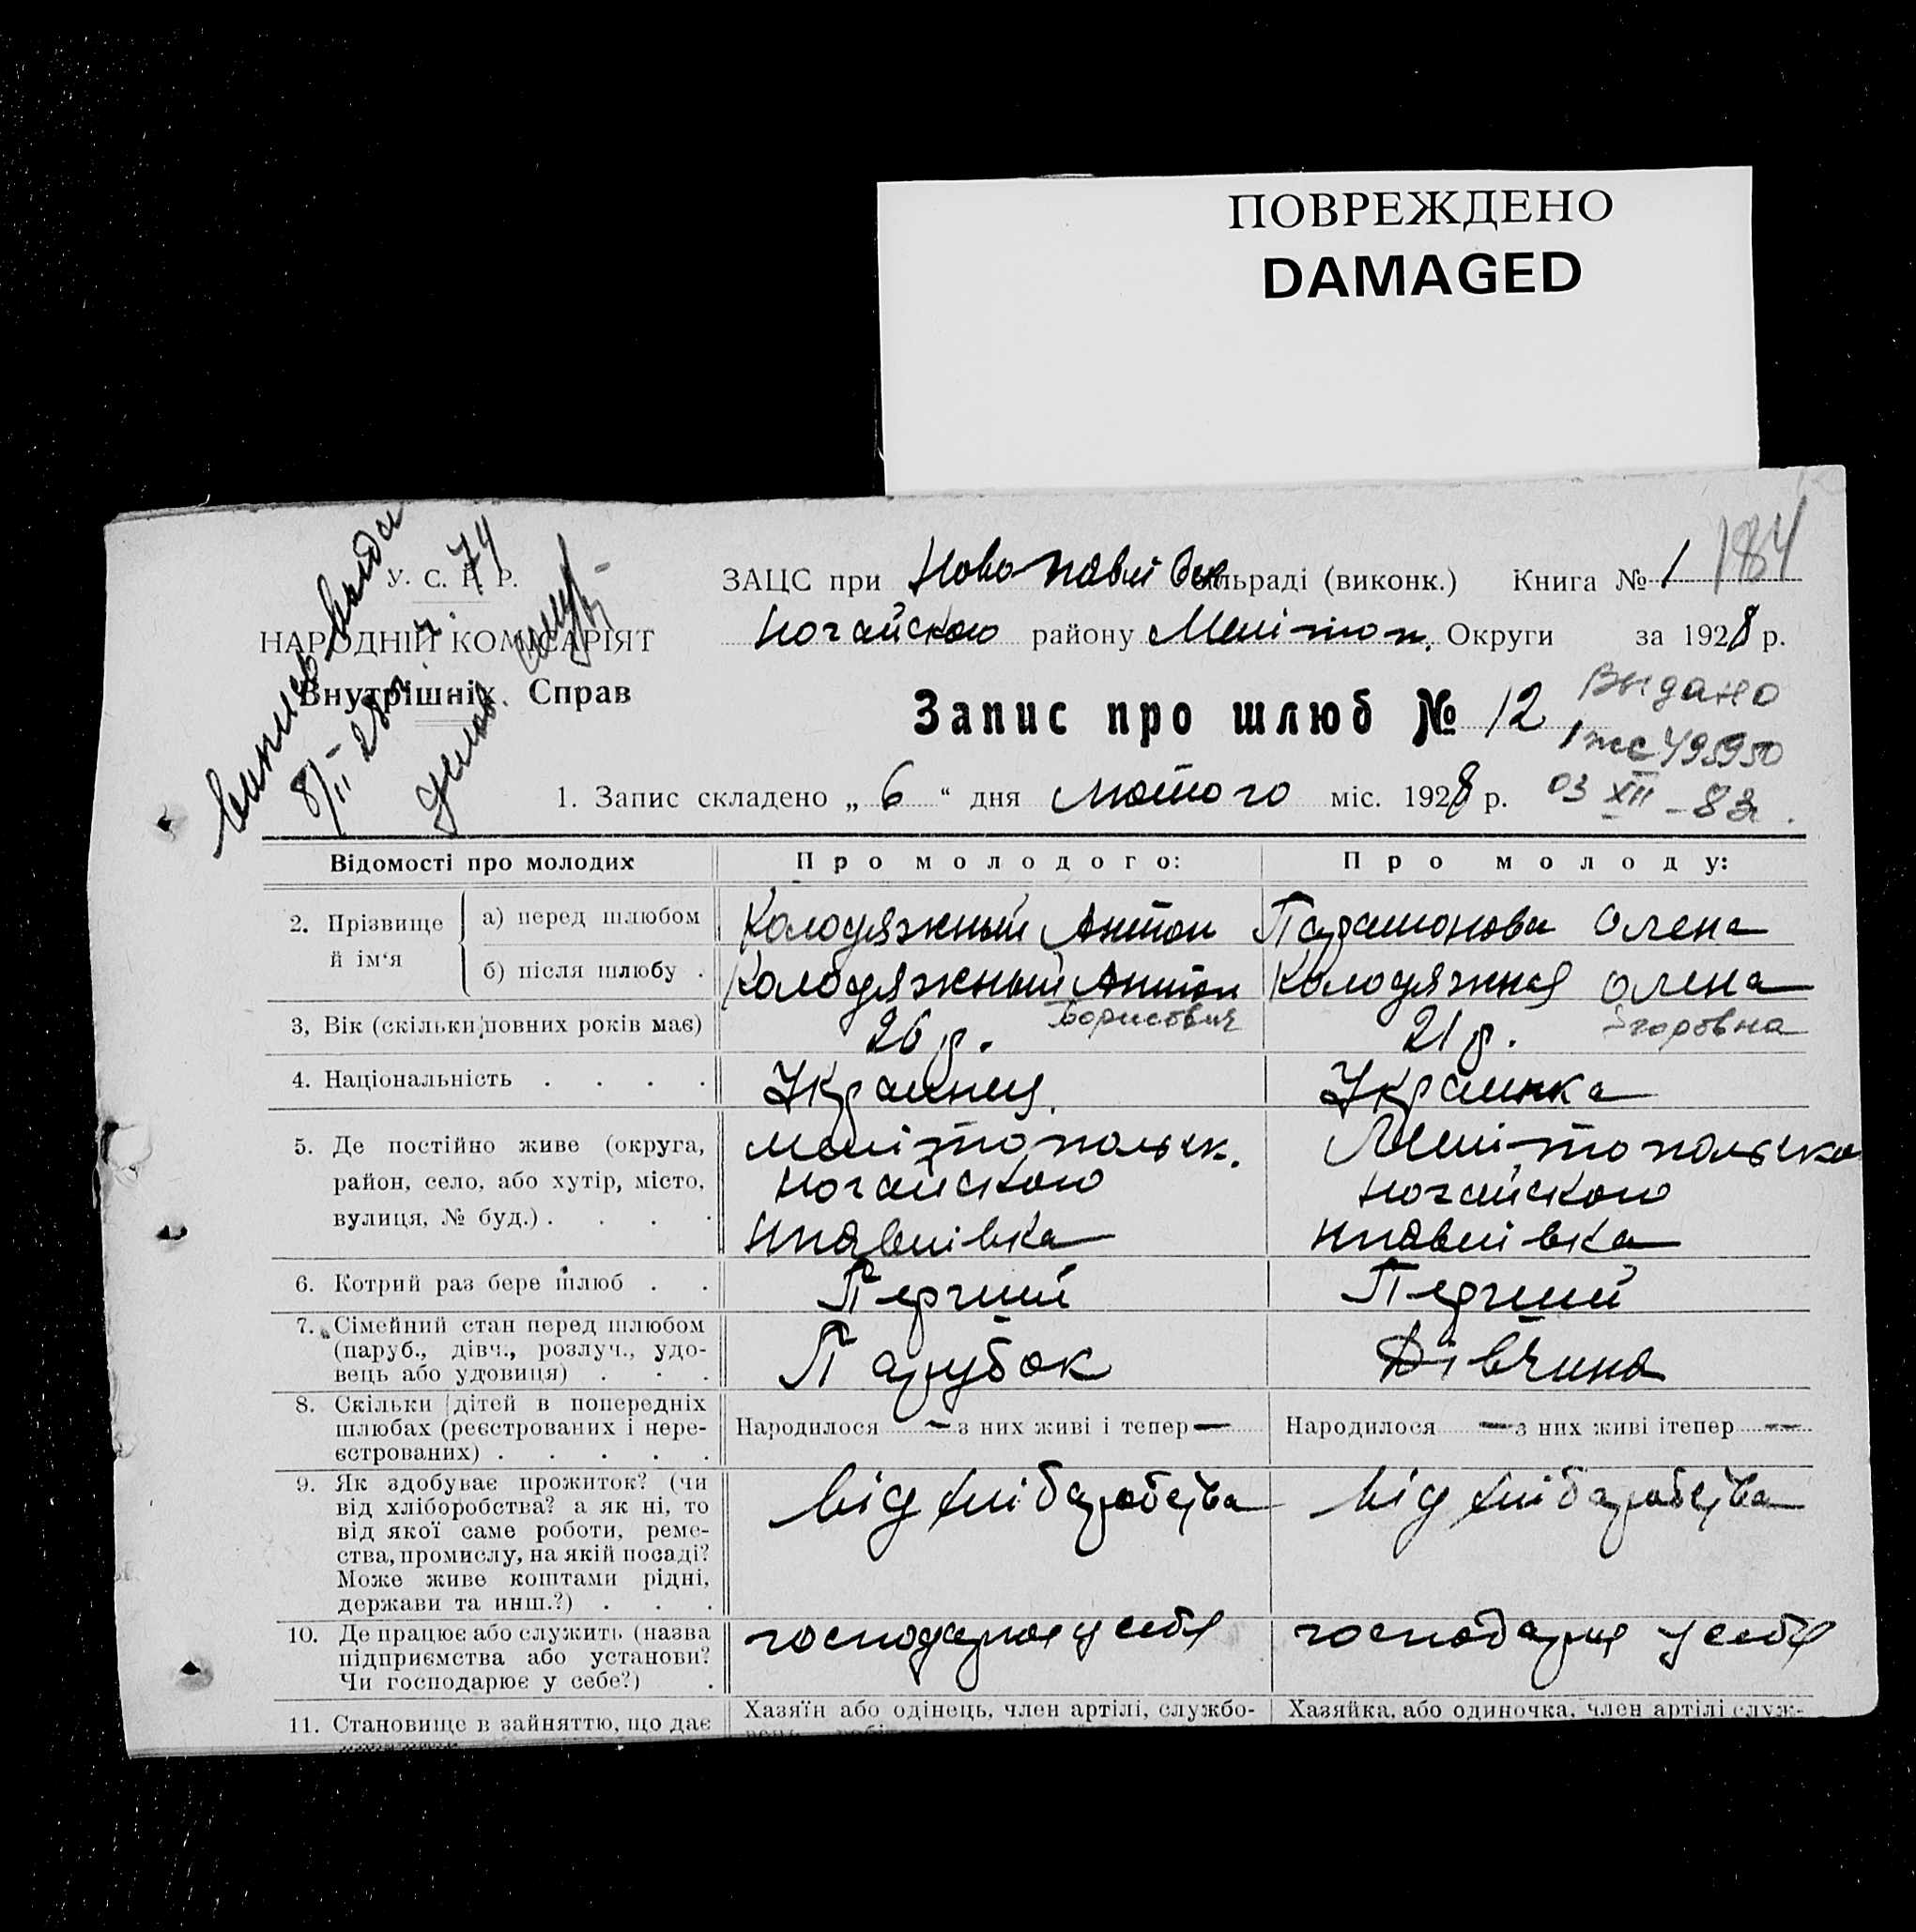 ПОВРЕЖДЕНО
DAMAGED
У. С. Р. Р.
НАРОДНІЙ КОМІСАРІЯТ
Внутрішніх Справ
8/II 28 р.
ЗАЦС при Новопавлівск сільраді (виконк.) Книга № 1 184
Ногайского району Мелітоп. Округи за 1928 р.
Запис про шлюб № 12
Выдано
495950
03 XII - 83г.
1. Запис складено „ 6 “ дня лютого міс. 1928 р.
Відомості про молодих
Про молодого:
Про молоду:
2. Прізвище й ім‘я
а) перед шлюбом
Колодяжный Антон
Парамонова Олена
б) після шлюбу .
Колодяжный Антон
Колодяжная Олена
Борисович
Єгоровна
3, Вік (скільки повних років має)
26 р.
21 р.
4. Національність . . . .
Украинец
Украинка
5. Де постійно живе (округа,
район, село, або хутір, місто,
вулиця, № буд.) . . . .
Мелітопольск.
Ногайского
НПавлівка
Мелітопольска
Ногайского
НПавлівка
6. Котрий раз бере шлюб . .
Перший
Перший
7. Сімейний стан перед шлюбом
(паруб., дівч., розлуч., удо-
вець або удовиця) . . .
Парубок
Дівчина
8. Скільки дітей в попередніх
шлюбах (реєстрованих і нере-
єстрованих) . . . . .
Народилося — з них живі і тепер —
Народилося — з них живі ітепер —
9. Як здобуває прожиток? (чи
від хліборобства? а як ні, то
від якої саме роботи, реме-
ства, промислу, на якій посаді?
Може живе коштами рідні,
держави та инш.?) . . .
від хліборобства
від хліборобства
10. Де працює або служить (назва
підприємства або установи?
Чи господарює у себе?) .
господарює у себя
господарює у себя
11. Становище в зайняттю, що дає
Хазяїн або одінець, член артілі, службо-
Хазяйка, або одиночка, член артілі служ-